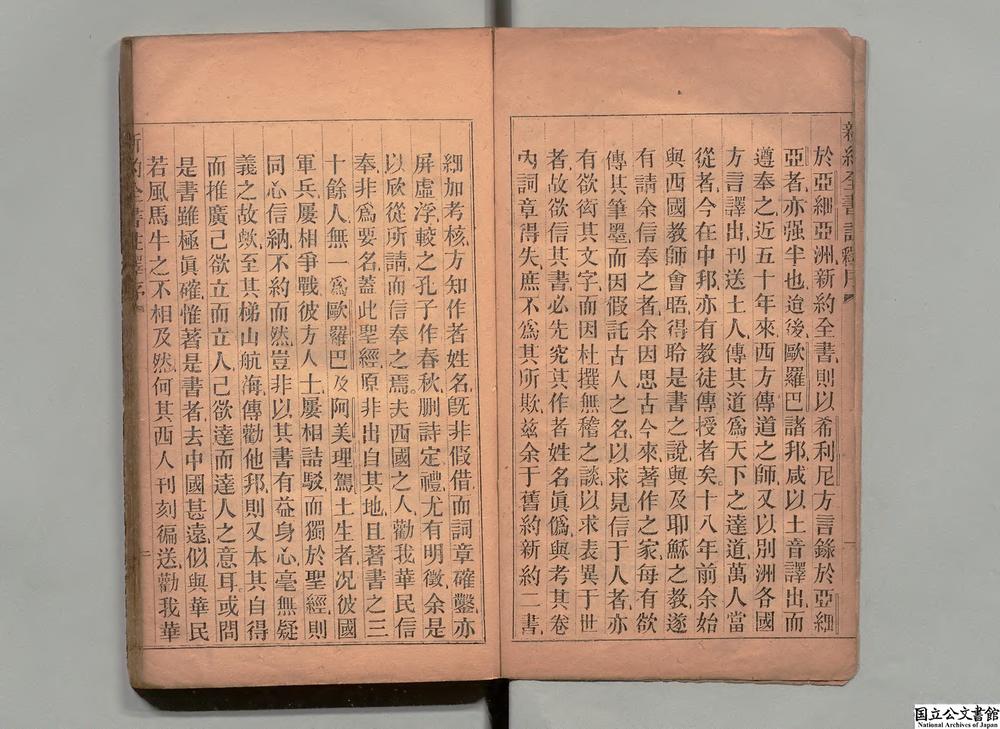 新約全書註釋序
於亞細亞洲新約全書則以希利尼方言錄於亞細
亞者亦强半也迨後歐羅巴諸邦咸以土音譯出而
遵奉之近五十年來西方傳道之師又以別洲各國
方言譯出刊送土人傳其道爲天下之達道萬人當
從者今在中邦亦有教徒傳授者矣。十八年前余始
與西國教師會晤得聆是書之說與及耶穌之教遂
有請余信奉之者余因思古今來著作之家每有欲
傳其筆墨而因假託古人之名以求見信于人者亦
有欲衒其文字而因杜撰無稽之談以求表異于世
者故欲信其書必先究其作者姓名眞僞與考其卷
內詞章得失庶不爲其所欺茲余于舊約新約二書
細加考核方知作者姓名旣非假借而詞章確鑿亦
屏虛浮較之孔子作春秋刪詩定禮尤有明徵余是
以欣從所請而信奉之焉。夫西國之人勸我華民信
奉非爲要名蓋此聖經原非出自其地且著書之三
十餘人無一爲歐羅巴及阿美理駕土生者况彼國
軍兵屢相爭戰彼方人士屢相詰駁而獨於聖經則
同心信納不約而然豈非以其書有益身心毫無疑
義之故歟至其梯山航海傳勸他邦則又本其自得
而推廣己欲立而立人己欲達而達人之意耳。或問
是書雖極眞確惟著是書者去中國甚遠似與華民
若風馬牛之不相及然何其西人刊刻徧送勸我華
新約全書註釋序
二
国立公文書館
National Archives of Japan